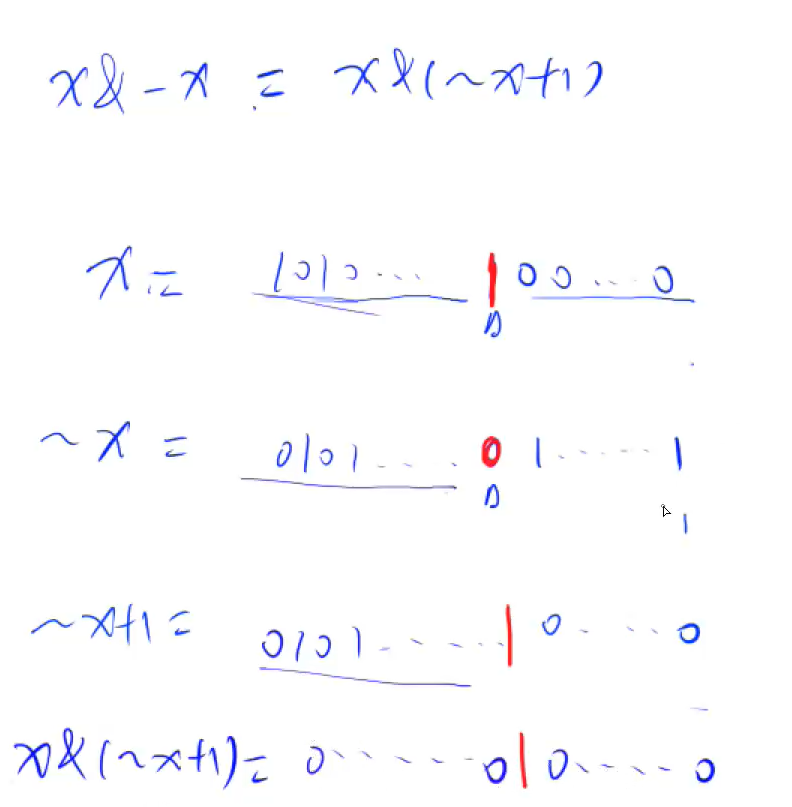 x&-x = x&(~x+1)
x = 1010... 100...0
~x = 0101.... 01.....1
1
~x+1 = 0101...... 10....0
x&(~x+1) = 0.....010....0